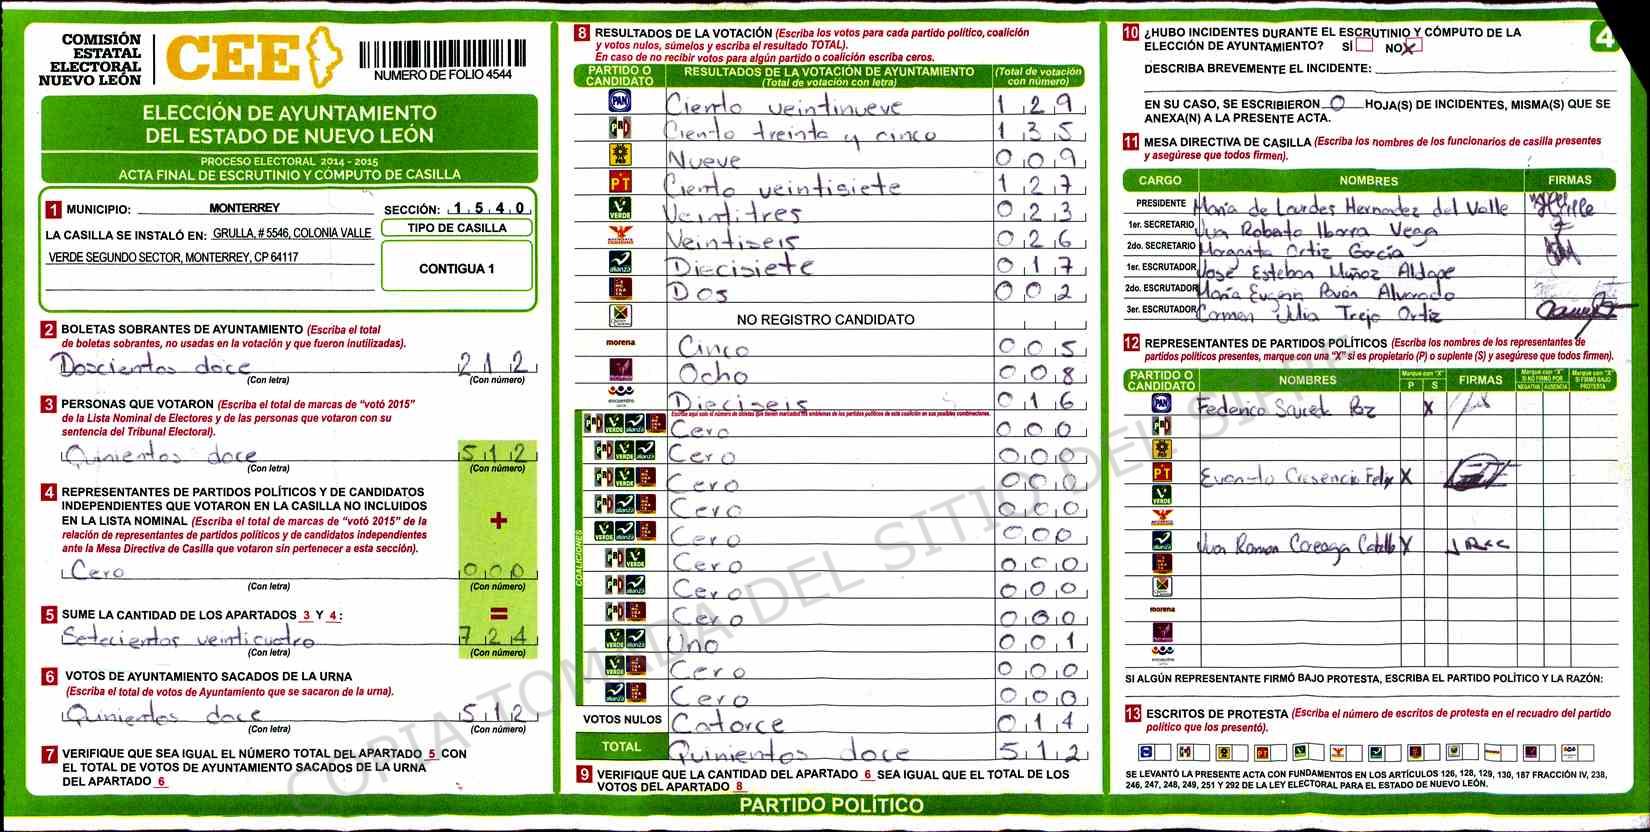 COMISIÓN
ESTATAL
ELECTORAL
NUEVO LEÓN
CEE
NUMERO DE FOLIO 4544
ELECCIÓN DE AYUNTAMIENTO
DEL ESTADO DE NUEVO LEÓN
PROCESO ELECTORAL 2014 - 2015
ACTA FINAL DE ESCRUTINIO Y CÓMPUTO DE CASILLA
1 MUNICIPIO: MONTERREY SECCIÓN: 1 5 4 0
LA CASILLA SE INSTALÓ EN: GRULLA, # 5546, COLONIA VALLE
VERDE SEGUNDO SECTOR, MONTERREY, CP 64117
TIPO DE CASILLA
CONTIGUA 1
2 BOLETAS SOBRANTES DE AYUNTAMIENTO (Escriba el total
de boletas sobrantes, no usadas en la votación y que fueron inutilizadas).
Doscientos doce 2 1 2
(Con letra) (Con número)
3 PERSONAS QUE VOTARON (Escriba el total de marcas de “votó 2015”
de la Lista Nominal de Electores y de las personas que votaron con su
sentencia del Tribunal Electoral).
Quinientos doce 5 1 2
(Con letra) (Con número)
4 REPRESENTANTES DE PARTIDOS POLÍTICOS Y DE CANDIDATOS
INDEPENDIENTES QUE VOTARON EN LA CASILLA NO INCLUIDOS
EN LA LISTA NOMINAL (Escriba el total de marcas de “votó 2015” de la
relación de representantes de partidos políticos y de candidatos independientes
ante la Mesa Directiva de Casilla que votaron sin pertenecer a esta sección).
+
Cero 0 0 0
(Con letra) (Con número)
5 SUME LA CANTIDAD DE LOS APARTADOS 3 Y 4: =
Setecientos veinticuatro 7 2 4
(Con letra) (Con número)
6 VOTOS DE AYUNTAMIENTO SACADOS DE LA URNA
(Escriba el total de votos de Ayuntamiento que se sacaron de la urna).
Quinientos doce 5 1 2
(Con letra) (Con número)
7 VERIFIQUE QUE SEA IGUAL EL NÚMERO TOTAL DEL APARTADO 5 CON
EL TOTAL DE VOTOS DE AYUNTAMIENTO SACADOS DE LA URNA
DEL APARTADO 6
8 RESULTADOS DE LA VOTACIÓN (Escriba los votos para cada partido político, coalición
y votos nulos, súmelos y escriba el resultado TOTAL).
En caso de no recibir votos para algún partido o coalición escriba ceros.
PARTIDO O CANDIDATO RESULTADOS DE LA VOTACIÓN DE AYUNTAMIENTO (Total de votación con letra) (Total de votación con número)
PAN Ciento veintinueve 1 2 9
PRI Ciento treinta y cinco 1 3 5
PRD Nueve 0 0 9
PT Ciento veintisiete 1 2 7
VERDE Veintitres 0 2 3
Veintiseis 0 2 6
alianza Diecisiete 0 1 7
Dos 0 0 2
NO REGISTRO CANDIDATO
morena Cinco 0 0 5
Ocho 0 0 8
encuentro Dieciseis 0 1 6
COALICIONES
Escriba aquí solo el número de boletas que tienen marcados los emblemas de los partidos políticos de esta coalición en sus posibles combinaciones.
Cero 0 0 0
Cero 0 0 0
Cero 0 0 0
Cero 0 0 0
Cero 0 0 0
Cero 0 0 0
Cero 0 0 0
Cero 0 0 0
Uno 0 0 1
Cero 0 0 0
Cero 0 0 0
VOTOS NULOS Catorce 0 1 4
TOTAL Quinientos doce 5 1 2
9 VERIFIQUE QUE LA CANTIDAD DEL APARTADO 6 SEA IGUAL QUE EL TOTAL DE LOS
VOTOS DEL APARTADO 8
PARTIDO POLÍTICO
4
10 ¿HUBO INCIDENTES DURANTE EL ESCRUTINIO Y CÓMPUTO DE LA
ELECCIÓN DE AYUNTAMIENTO? SI NO X
DESCRIBA BREVEMENTE EL INCIDENTE:
EN SU CASO, SE ESCRIBIERON 0 HOJA(S) DE INCIDENTES, MISMA(S) QUE SE
ANEXA(N) A LA PRESENTE ACTA.
11 MESA DIRECTIVA DE CASILLA (Escriba los nombres de los funcionarios de casilla presentes
y asegúrese que todos firmen).
CARGO NOMBRES FIRMAS
PRESIDENTE María de Lourdes Hernandez del Valle
1er. SECRETARIO Juan Roberto Ibarra Vega
2do. SECRETARIO Margarita Ortiz García
1er. ESCRUTADOR José Esteban Muñoz Aldape
2do. ESCRUTADOR María Eugenia Pavón Alvarado
3er. ESCRUTADOR Carmen Julia Trejo Ortiz
12 REPRESENTANTES DE PARTIDOS POLÍTICOS (Escriba los nombres de los representantes de
partidos políticos presentes, marque con una “X” si es propietario (P) o suplente (S) y asegúrese que todos firmen).
PARTIDO O CANDIDATO NOMBRES Marque con “X” P S FIRMAS Marque con “X” SI NO FIRMÓ POR NEGATIVA AUSENCIA Marque con “X” SI FIRMÓ BAJO PROTESTA
PAN Federico X
PRI
PRD
PT Cresencio Felix X
VERDE
alianza Juan Ramon X
morena
encuentro
SI ALGÚN REPRESENTANTE FIRMÓ BAJO PROTESTA, ESCRIBA EL PARTIDO POLÍTICO Y LA RAZÓN:
13 ESCRITOS DE PROTESTA (Escriba el número de escritos de protesta en el recuadro del partido
político que los presentó).
SE LEVANTÓ LA PRESENTE ACTA CON FUNDAMENTOS EN LOS ARTÍCULOS 126, 128, 129, 130, 187 FRACCIÓN IV, 238,
246, 247, 248, 249, 251 Y 292 DE LA LEY ELECTORAL PARA EL ESTADO DE NUEVO LEÓN.
COPIA TOMADA DEL SITIO DEL SIPRE